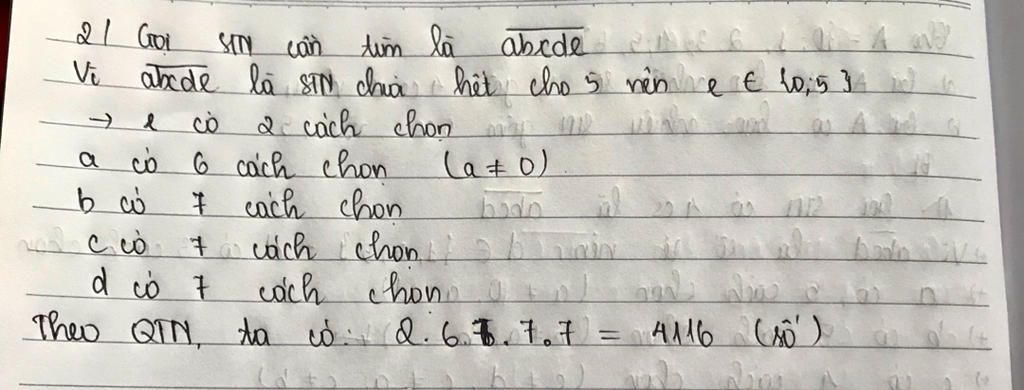 2/ Gọi STN cần tìm là abcde
Vì abcde là STN chia hết cho 5 nên e ∈ {0;5}
→ e có 2 cách chọn
a có 6 cách chọn (a ≠ 0)
b có 7 cách chọn
c có 7 cách chọn
d có 7 cách chọn
Theo QTN, ta có: 2.6.7.7.7 = 4116 (số)